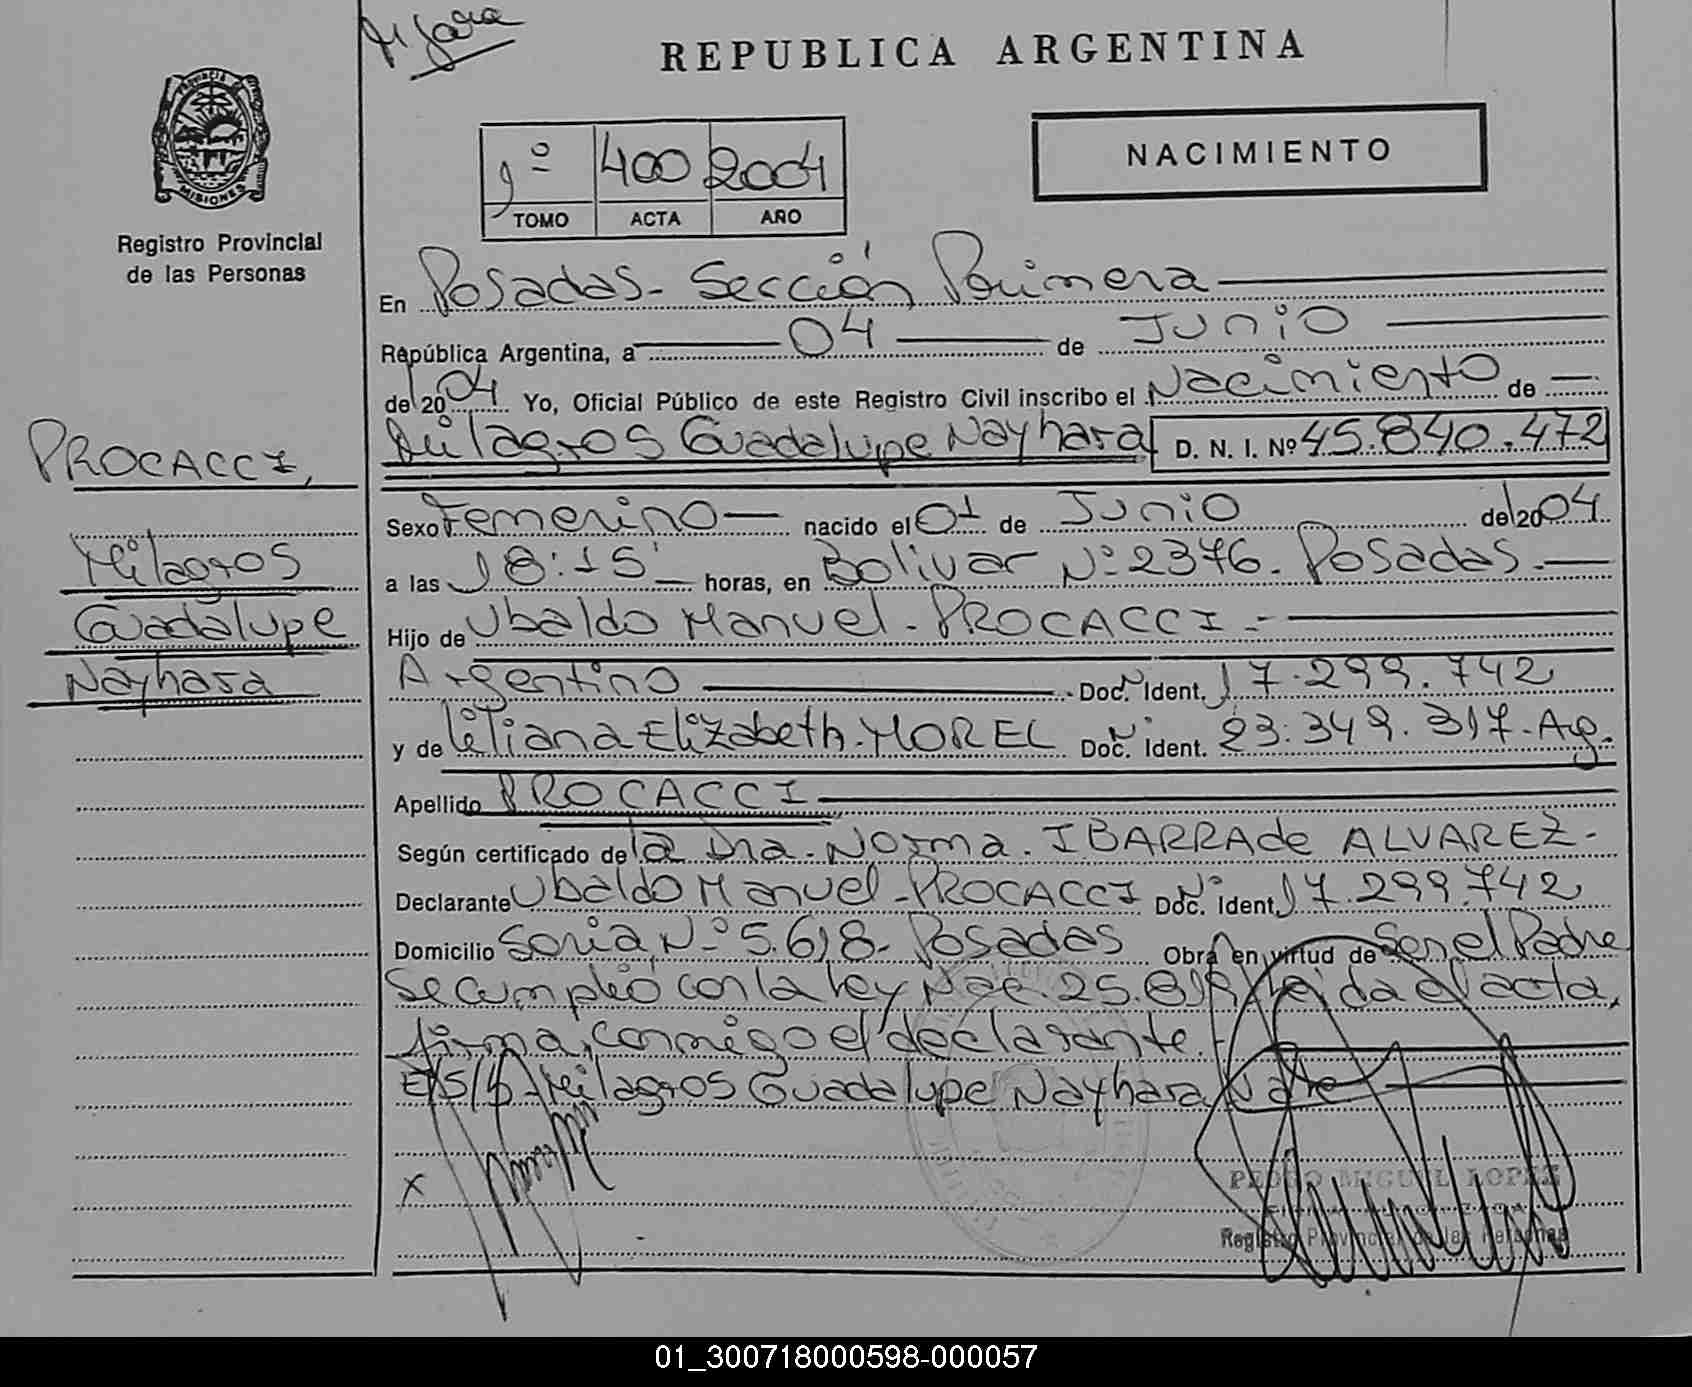 REPUBLICA ARGENTINA
PROVINCIA DE
MISIONES
Registro Provincial
de las Personas
1º 400 2004
TOMO ACTA AÑO
NACIMIENTO
En Posadas - Sección Primera
República Argentina, a 04 de Junio
de 2004 Yo, Oficial Público de este Registro Civil inscribo el Nacimiento de
Milagros Guadalupe Nayhara D. N. I. Nº 45.840.472
PROCACCI,
Milagros
Guadalupe
Nayhara
Sexo Femenino nacido el 01 de Junio de 2004
a las 18:15 horas, en Bolivar Nº 2376. Posadas.
Hijo de Ubaldo Manuel - PROCACCI.-
Argentino Doc. Nº Ident. 17.299.742
y de Liliana Elizabeth - MOREL Doc. Nº Ident. 23.349.317 - Arg.
Apellido PROCACCI
Según certificado de la Dra. Norma. IBARRA de ALVAREZ -
Declarante Ubaldo Manuel - PROCACCI Doc. Nº Ident. 17.299.742
Domicilio Soria, Nº 5.618 - Posadas Obra en virtud de Ser el Padre
Se cumplió con la Ley Nac. 25.819 Leída el acta,
firma, conmigo el declarante.
E/S/b - Milagros Guadalupe Nayhara Vale
X
PEDRO MIGUEL LOPEZ
Registro Provincial de las Personas
01_300718000598-000057